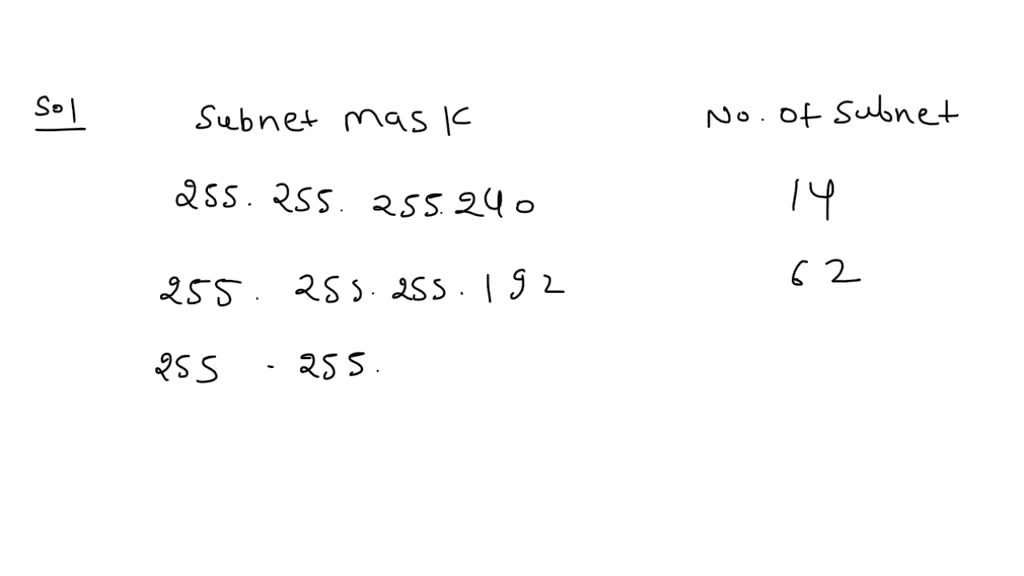 Sol
Subnet mask No. of Subnet
255. 255. 255.240 14
255. 255. 255. 192 62
255 . 255.